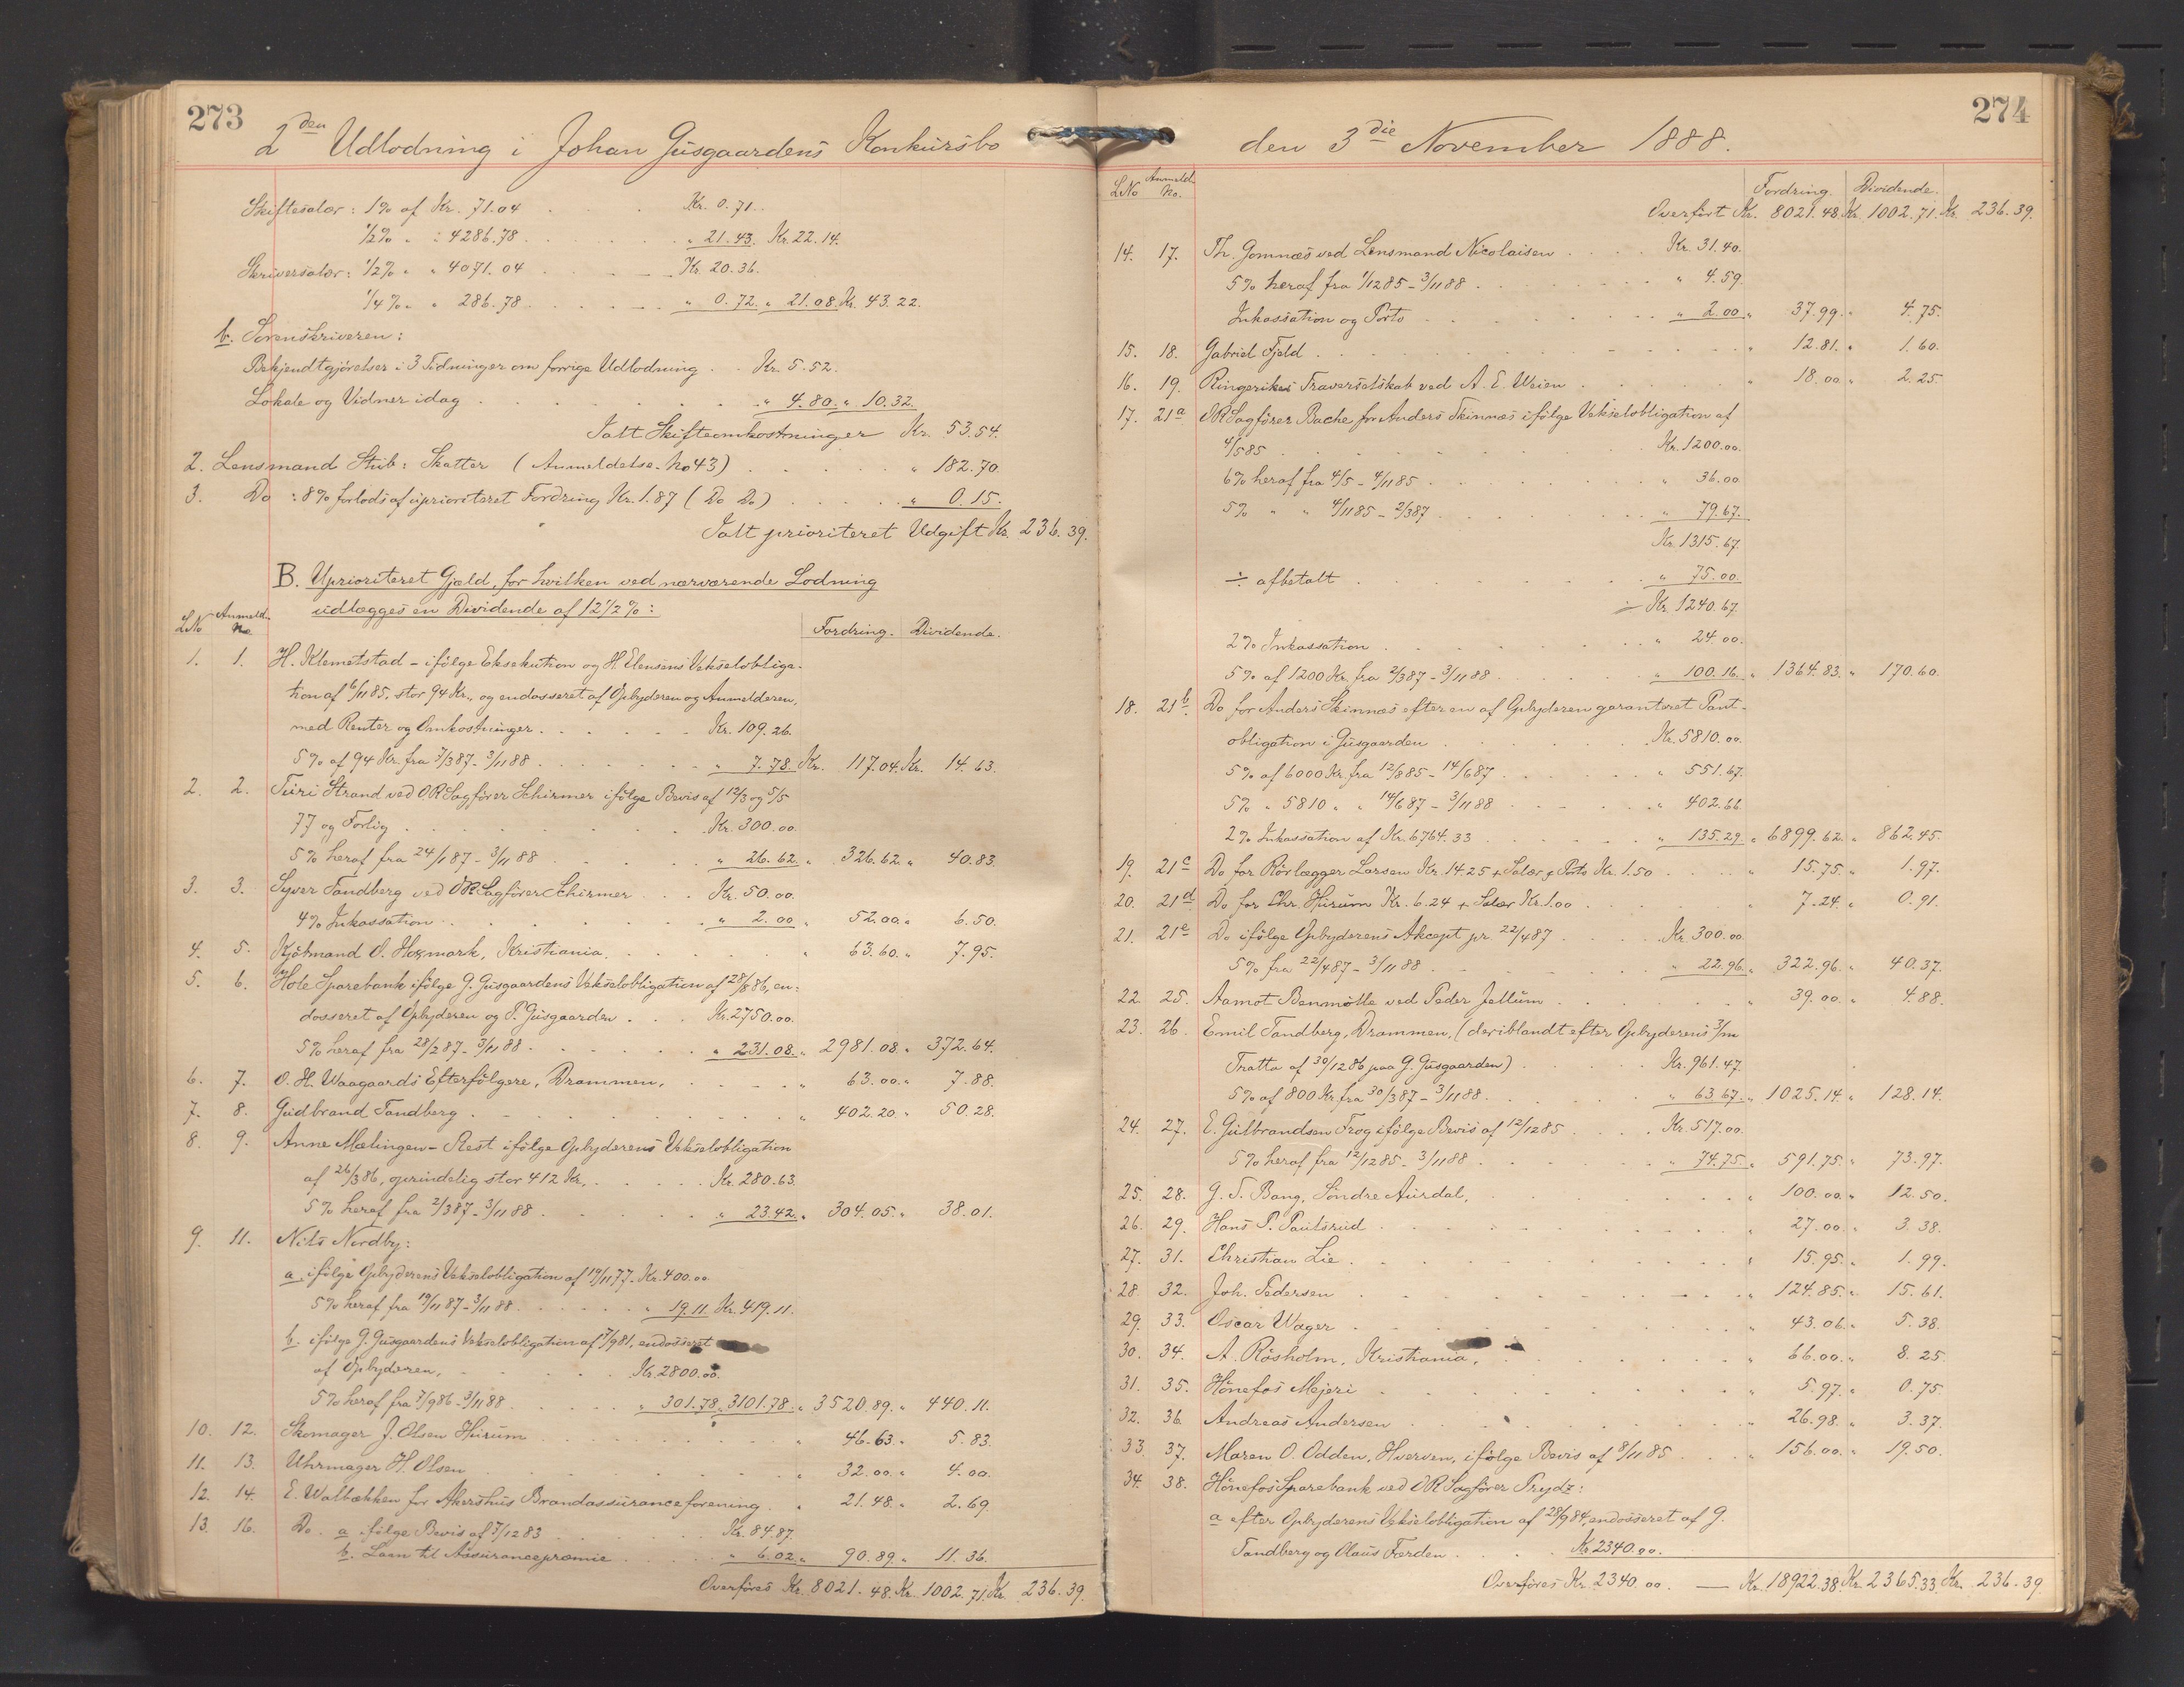 273
2den Udlodning i Johan Gusgaardens Konkursbo
Skiftesalær: 1% af Kr. 71.04 . . . Kr. 0.71.
1/2% " : 4286.78 . . . " 21.43. Kr. 22.14.
Skriversalær: 1/2% " " 4071.04 . . . Kr. 20.36.
1/4% " " 286.78 . . . " 0.72. " 21.08. Kr. 43.22.
b. Sorenskriveren:
Bekjendtgjörelser i 3 Tidninger om forrige Udlodning . . Kr. 5.52.
Lokale og Vidner idag . . . " 4.80. " 10.32.
Ialt Skifteomkostninger Kr. 53.54.
2. Lensmand Stub: Skatter (Anmeldelse No 43) . . . " 182.70.
3. Do : 8% forlods af uprioriteret Fordring Kr. 1.87 (Do Do) . . . " 0.15.
Ialt prioriteret Udgift Kr. 236.39.
B. Uprioriteret Gjæld, for hvilken ved nærværende Lodning
udlægges en Dividende af 12 1/2 %:
LNo Anmeld. No Fordring. Dividende.
1. 1. H. Klemetstad - ifölge Eksekution og H. Elensens Vekselobliga-
tion af 6/11 85, stor 94 Kr., og endosseret af Opbyderen og Anmelderen,
med Renter og Omkostninger . . . Kr. 109.26.
5% af 94 Kr. fra 7/3 87 - 3/11 88 . . . " 7.78. Kr. 117.04. Kr. 14.63.
2. 2. Turi Strand ved ORSagförer Schirmer ifölge Bevis af 12/3 og 5/5
77 og Forlig . . . Kr. 300.00.
5% heraf fra 24/1 87 - 3/11 88 . . . " 26.62. " 326.62. " 40.83.
3. 3. Syver Tandberg ved ORSagförer Schirmer . . . Kr. 50.00.
4% Inkassation . . . " 2.00. " 52.00. " 6.50.
4. 5. Kjötmand O. Hoxmark, Kristiania . . . " 63.60. " 7.95.
5. 6. Hole Sparebank ifölge G. Gusgaardens Vekselobligation af 28/8 86, en-
dosseret af Opbyderen og P. Gusgaarden . . . Kr. 2750.00.
5% heraf fra 28/2 87 - 3/11 88 . . . " 231.08. " 2981.08. " 372.64.
6. 7. O. H. Waagaards Efterfölgere, Drammen, . . . " 63.00. " 7.88.
7. 8. Gudbrand Tandberg . . . " 402.20. " 50.28.
8. 9. Anne Mælingen - Rest ifölge Opbyderens Vekselobligation
af 26/3 86, oprindelig stor 412 Kr., . . . Kr. 280.63.
5% heraf fra 2/3 87 - 3/11 88 . . . " 23.42. " 304.05. " 38.01.
9. 11. Nils Nordby:
a. ifölge Opbyderens Vekselobligation af 19/11 77 - Kr. 400.00.
5% heraf fra 19/11 87 - 3/11 88 . . . " 19.11. Kr. 419.11.
b. ifölge G. Gusgaardens Vekselobligation af 7/9 81, endosseret
af Opbyderen, . . . Kr. 2800.00.
5% heraf fra 7/9 86 - 3/11 88 . . . " 301.78. " 3101.78. " 3520.89. " 440.11.
10. 12. Skomager J. Olsen Hurum . . . " 46.63. " 5.83.
11. 13. Uhrmager H. Olsen . . . " 32.00. " 4.00.
12. 14. E. Walbækken for Akershus Brandassuranceforening . " 21.48. " 2.69.
13. 16. Do. a. ifölge Bevis af 7/12 83 . . . Kr. 84.87.
b. Laan til Assurancepræmie . . . " 6.02. " 90.89. " 11.36.
Overföres Kr. 8021.48. Kr. 1002.71. Kr. 236.39.
274
den 3die November 1888.
LNo Anmeld. No. Fordring. Dividende.
Overfört Kr. 8021.48. Kr. 1002.71. Kr. 236.39.
14. 17. Th. Gomnæs ved Lensmand Nicolaisen . . . Kr. 31.40.
5% heraf fra 1/12 85 - 3/11 88 . . . " 4.59.
Inkassation og Porto . . . " 2.00. " 37.99. " 4.75.
15. 18. Gabriel Fjeld . . . " 12.81. " 1.60.
16. 19. Ringerikes Traverselskab ved A. E. Weien . . . " 18.00. " 2.25.
17. 21a ORSagförer Bache for Anders Skinnæs ifölge Vekselobligation af
4/5 85 . . . Kr. 1200.00.
6% heraf fra 4/5 - 4/11 85 . . . " 36.00
5% " " 4/11 85 - 2/3 87 . . . " 79.67.
Kr. 1315.67.
÷ afbetalt . . . " 75.00.
÷ Kr. 1240.67.
2% Inkassation . . . " 24.00.
5% af 1200 Kr. fra 2/3 87 - 3/11 88 . . . " 100.16. " 1364.83. " 170.60.
18. 21b. Do for Anders Skinnæs efter en af Opbyderen garanteret Pant-
obligation i Gusgaarden . . . Kr. 5810.00.
5% af 6000 Kr. fra 12/8 85 - 14/6 87 . . . " 551.67.
5% " 5810 " " 14/6 87 - 3/11 88 . . . " 402.66.
2% Inkassation af Kr. 6764.33 . . . " 135.29. " 6899.62. " 862.45.
19. 21c Do for Rörlægger Larsen Kr. 14.25 + Salær & Porto Kr. 1.50 . . . " 15.75. " 1.97.
20. 21d Do for Chr. Hurum Kr. 6.24 + Salær Kr. 1.00 . . . " 7.24. " 0.91.
21. 21e Do ifölge Opbyderens Akcept pr. 22/4 87 . . . Kr. 300.00.
5% fra 22/4 87 - 3/11 88 . . . " 22.96. " 322.96. " 40.37.
22. 25. Aamot Benmölle ved Peder Jellum . . . " 39.00. " 4.88.
23. 26. Emil Tandberg, Drammen, (deriblandt efter Opbyderens 3/m
Tratta af 30/12 86 paa G. Gusgaarden) . . . Kr. 961.47.
5% af 800 Kr. fra 30/3 87 - 3/11 88 . . . " 63.67. " 1025.14. " 128.14.
24. 27. E. Gulbrandsen Frog ifölge Bevis af 12/12 85 . . . Kr. 517.00.
5% heraf fra 12/12 85 - 3/11 88 . . . " 74.75. " 591.75. " 73.97.
25. 28. G. T. Bang, Söndre Aurdal, . . . " 100.00. " 12.50.
26. 29. Hans P. Pautsrud . . . " 27.00. " 3.38.
27. 31. Christian Lie . . . " 15.95. " 1.99.
28. 32. Joh. Pedersen . . . " 124.85. " 15.61.
29. 33. Oscar Wager . . . " 43.06. " 5.38.
30. 34. A. Rösholm, Kristiania, . . . " 66.00. " 8.25.
31. 35. Hönefos Mejeri . . . " 5.97. " 0.75.
32. 36. Andreas Andersen . . . " 26.98. " 3.37.
33. 37. Maren O. Odden, Hverven, ifölge Bevis af 8/11 85 . . . " 156.00. " 19.50.
34. 38. Hönefos Sparebank ved ORSagförer Prydz:
a efter Opbyderens Vekselobligation af 28/9 84, endosseret af G.
Tandberg og Olaus Færden . . . Kr. 2340.00.
Overföres Kr. 2340.00. — Kr. 18922.38. Kr. 2365.33. Kr. 236.39.